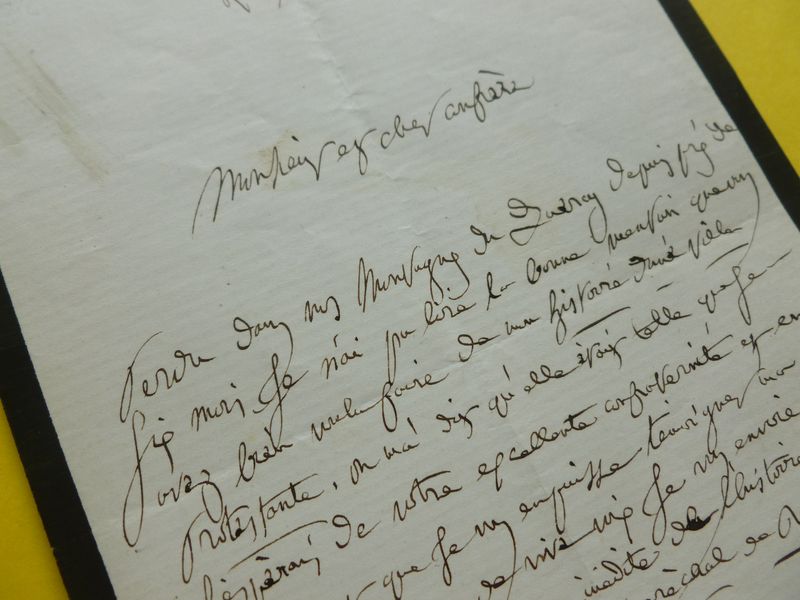 Monsieur et cher confrère
Perdu dans nos Montagnes du Quercy depuis près de
six mois je n'ai pu lire la bonne mention que vous
avez bien voulu faire de mon histoire d'une ville
Protestante, on m'a dit qu'elle était telle que je
l'espérais de votre excellente confraternité et en
que je vous puisse témoigner ma
de vive voix je vous envoie
inédite de l'histoire
maréchal de